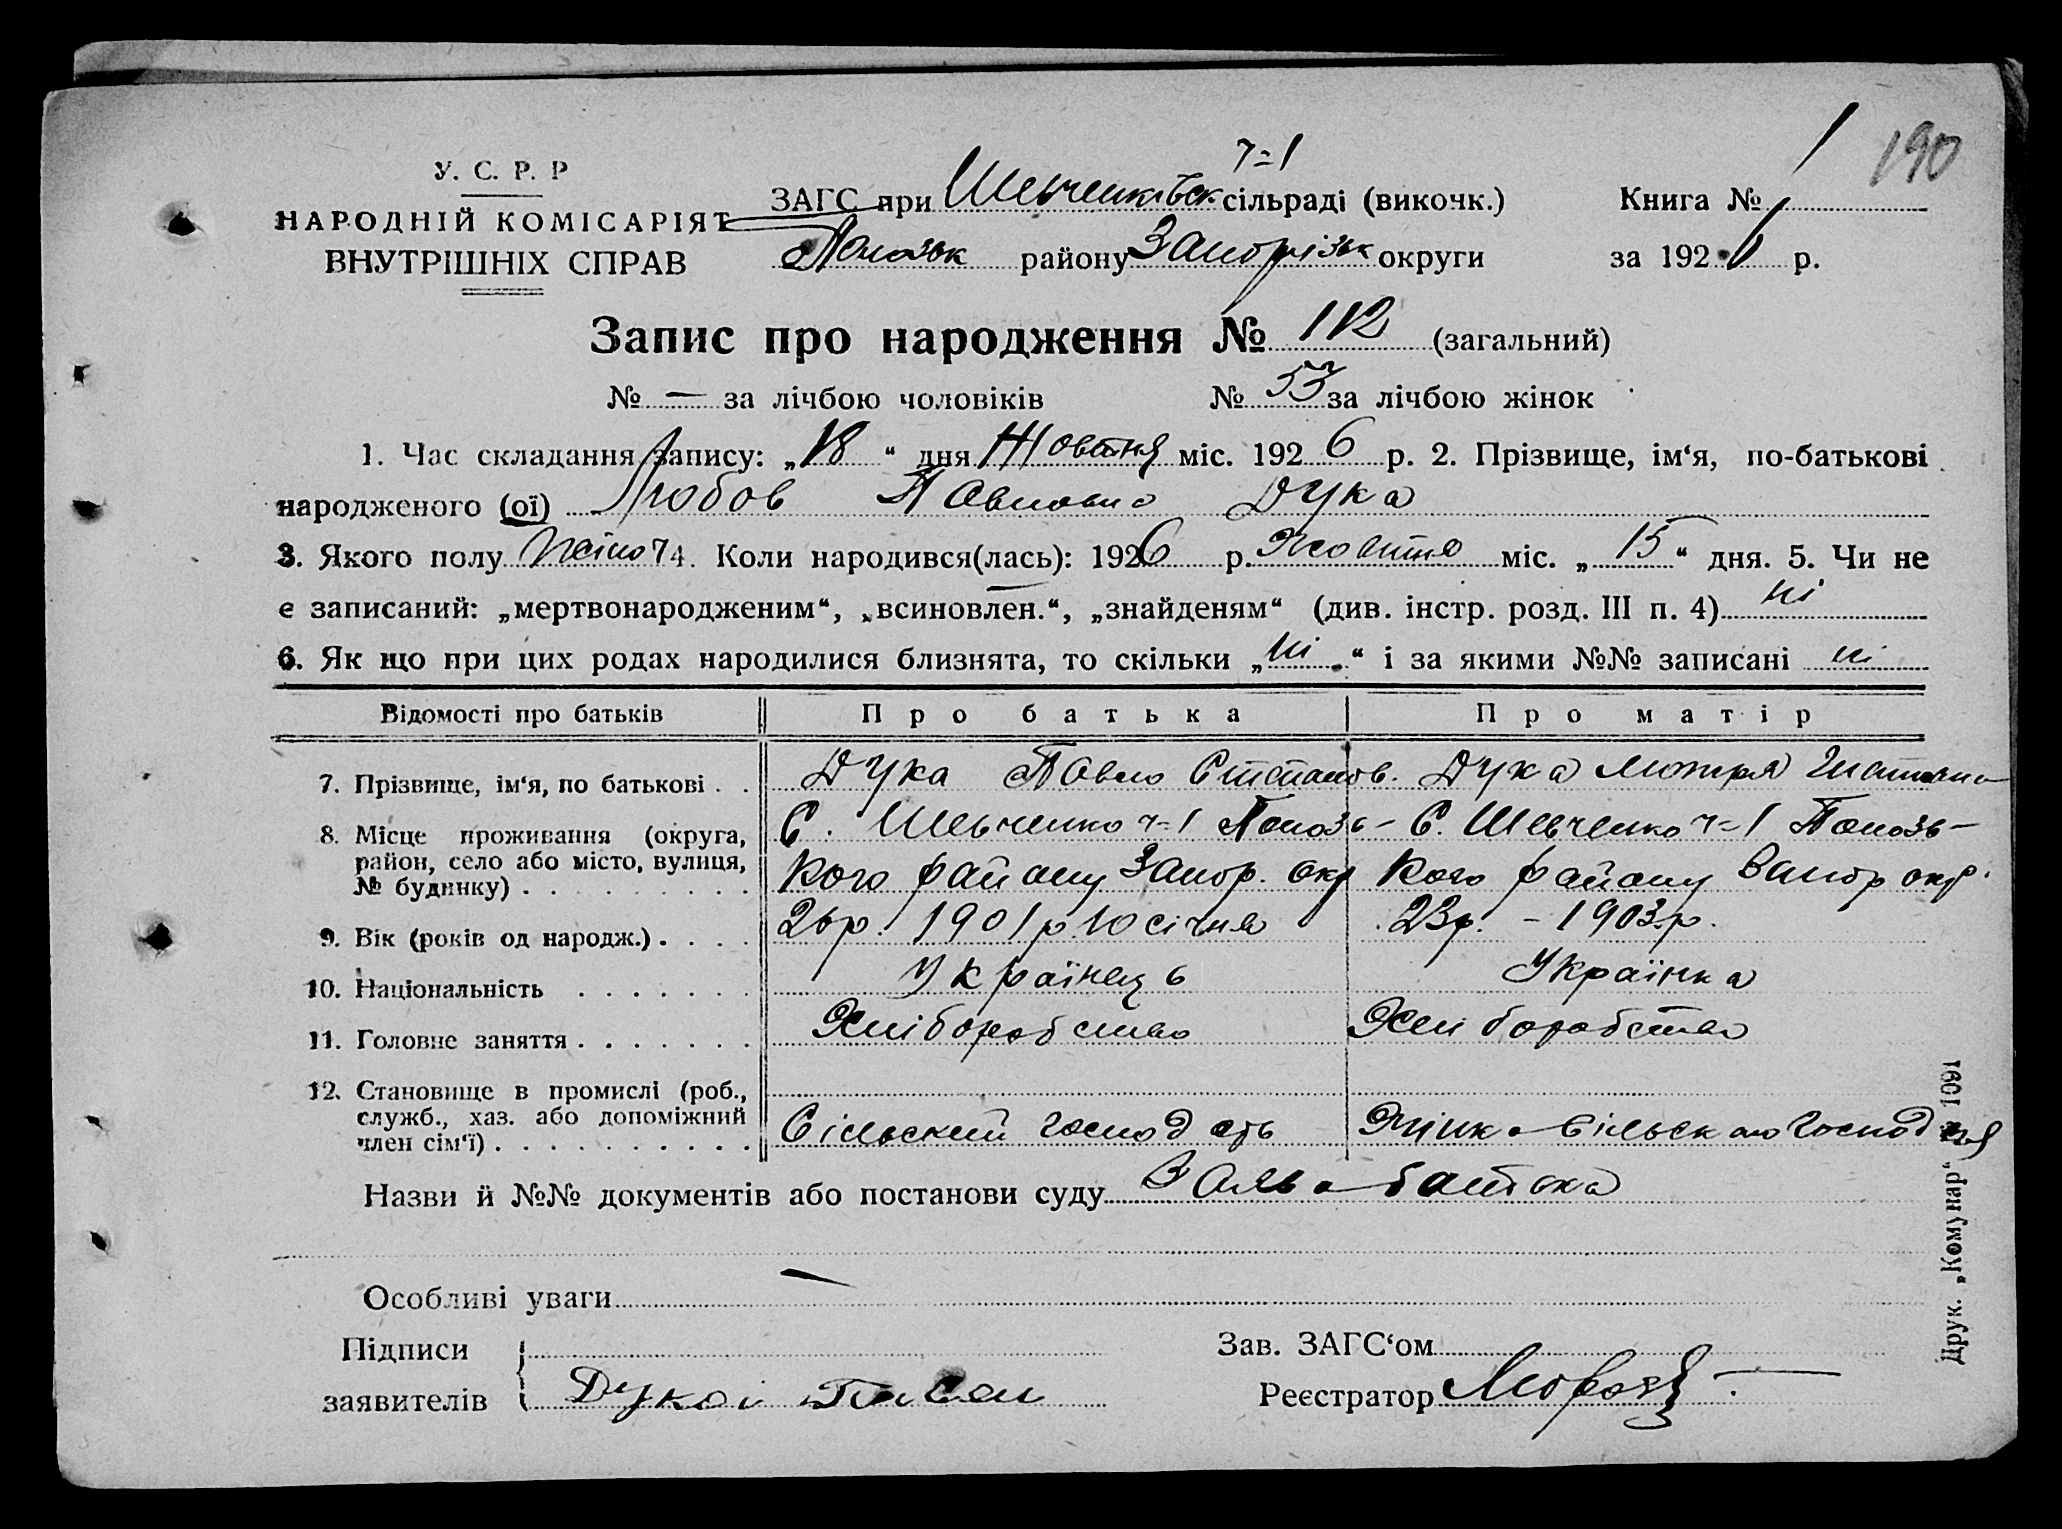 190
У. С. Р. Р
НАРОДНІЙ КОМІСАРІЯТ
ВНУТРІШНІХ СПРАВ
ч=1
ЗАГС при Шевченківськ сільраді (викочк.) Книга № 1
Полозьк району Запорізьк округи за 1926 р.
Запис про народження № 112 (загальний)
№ — за лічбою чоловіків № 53 за лічбою жінок
1. Час складання запису: „18“ дня Жовтня міс. 1926 р. 2. Прізвище, ім‘я, по-батькові
народженого (ої) Любов Павловна Дука
3. Якого полу жіноч 4. Коли народився(лась): 1926 р. Жовтня міс. „15“ дня. 5. Чи не
є записаний: „мертвонародженим“, „всиновлен.“, „знайденям“ (див. інстр. розд. III п. 4) ні
6. Як що при цих родах народилися близнята, то скільки „ні“ і за якими №№ записані ні
Відомості про батьків Про батька Про матір
7. Прізвище, ім‘я, по батькові . . Дука Павло Степанов. Дука Мотря
8. Місце проживання (округа, С. Шевченко ч=1 Полозь- С. Шевченко ч=1 Полозь-
район, село або місто, вулиця,
№ будинку) . . . . . . . . . кого району Запор. окр кого району Запор окр.
9. Вік (років од народж.) . . . . 26р. 1901р 10 січня 23р. - 1903р.
10. Національність . . . . . . . Українець Українка
11. Головне заняття . . . . . . . Хліборобство Хліборобство
12. Становище в промислі (роб.,
служб., хаз. або допоміжний
член сім‘ї) . . . . . . . . . . Сільський господарь Жінка сільського господаря
Назви й №№ документів або постанови суду Заява батька
Особливі уваги —
Підписи Зав. ЗАГС‘ом
заявителів Дука Реєстратор Мороз
Друк. „Комунар“ № 1091